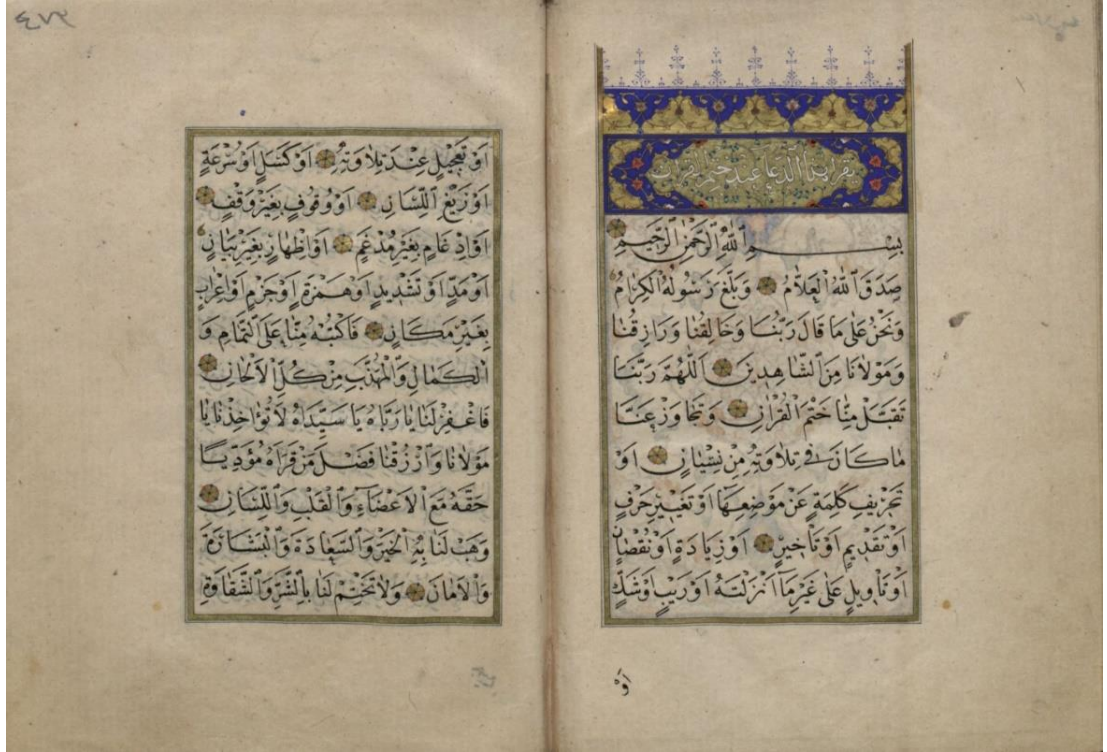 يقرأ هذا الدعا عند ختم القرآن
بِسْمِ اللّٰهِ الرَّحْمٰنِ الرَّحِيمِ
صَدَقَ اللّٰهُ الْعَلَّامُ وَبَلَّغَ رَسُولُهُ الْكِرَامُ
وَنَحْنُ عَلٰى مَا قَالَ رَبُّنَا وَخَالِقُنَا وَرَازِقُنَا
وَمَوْلَانَا مِنَ الشَّاهِدِينَ اَللّٰهُمَّ رَبَّنَا
تَقَبَّلْ مِنَّا خَتْمَ الْقُرْاٰنِ وَتَجَاوَزْ عَنَّا
مَا كَانَ فِي تِلَاوَتِهِ مِنْ نِسْيَانٍ اَوْ
تَحْرِيفِ كَلِمَةٍ عَنْ مَوْضِعِهَا اَوْ تَغْيِيرِ حَرْفٍ
اَوْ تَقْدِيمٍ اَوْ تَأْخِيرٍ اَوْ زِيَادَةٍ اَوْ نُقْصَانٍ
اَوْ تَأْوِيلٍ عَلٰى غَيْرِ مَا اَنْزَلْتَهُ اَوْ رَيْبٍ اَوْ شَكٍّ
اَوْ
٤٧٣
اَوْ تَعْجِيلٍ عِنْدَ تِلَاوَتِهِ اَوْ كَسَلٍ اَوْ سُرْعَةٍ
اَوْ زَيْغِ اللِّسَانِ اَوْ وُقُوفٍ بِغَيْرِ وَقْفٍ
اَوْ اِدْغَامٍ بِغَيْرِ مُدْغَمٍ اَوْ اِظْهَارٍ بِغَيْرِ بَيَانٍ
اَوْ مَدٍّ اَوْ تَشْدِيدٍ اَوْ هَمْزَةٍ اَوْ جَزْمٍ اَوْ اِعْرَابٍ
بِغَيْرِ مَكَانٍ فَاكْتُبْهُ مِنَّا عَلَى التَّمَامِ وَ
الْكَمَالِ وَالْمُهَذَّبِ مِنْ كُلِّ الْاَلْحَانِ
فَاغْفِرْ لَنَا يَا رَبَّاهُ يَا سَيِّدَاهُ لَا تُؤَاخِذْنَا يَا
مَوْلَانَا وَارْزُقْنَا فَضْلَ مَنْ قَرَأَهُ مُؤَدِّيًا
حَقَّهُ مَعَ الْاَعْضَاءِ وَالْقَلْبِ وَاللِّسَانِ
وَهَبْ لَنَا بِهِ الْخَيْرَ وَالسَّعَادَةَ وَالْبَشَارَةَ
وَالْاَمَانَ وَلَا تَخْتِمْ لَنَا بِالشَّرِّ وَالشَّقَاوَةِ